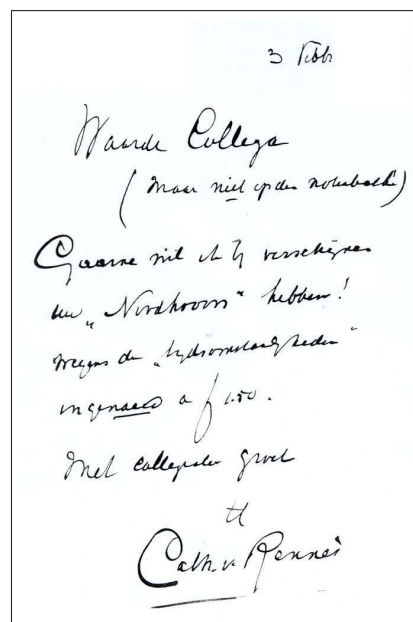 3 Febr
Waarde Collega
(maar niet op den notenbalk)
Gaarne wil ik bij verschijnen
uw „Nordhoorn" hebben!
wegens de „tijdsomstandigheden"
ingenaaid a f 1.50.
Met collegialen groet
tt
Cath. v. Rennes